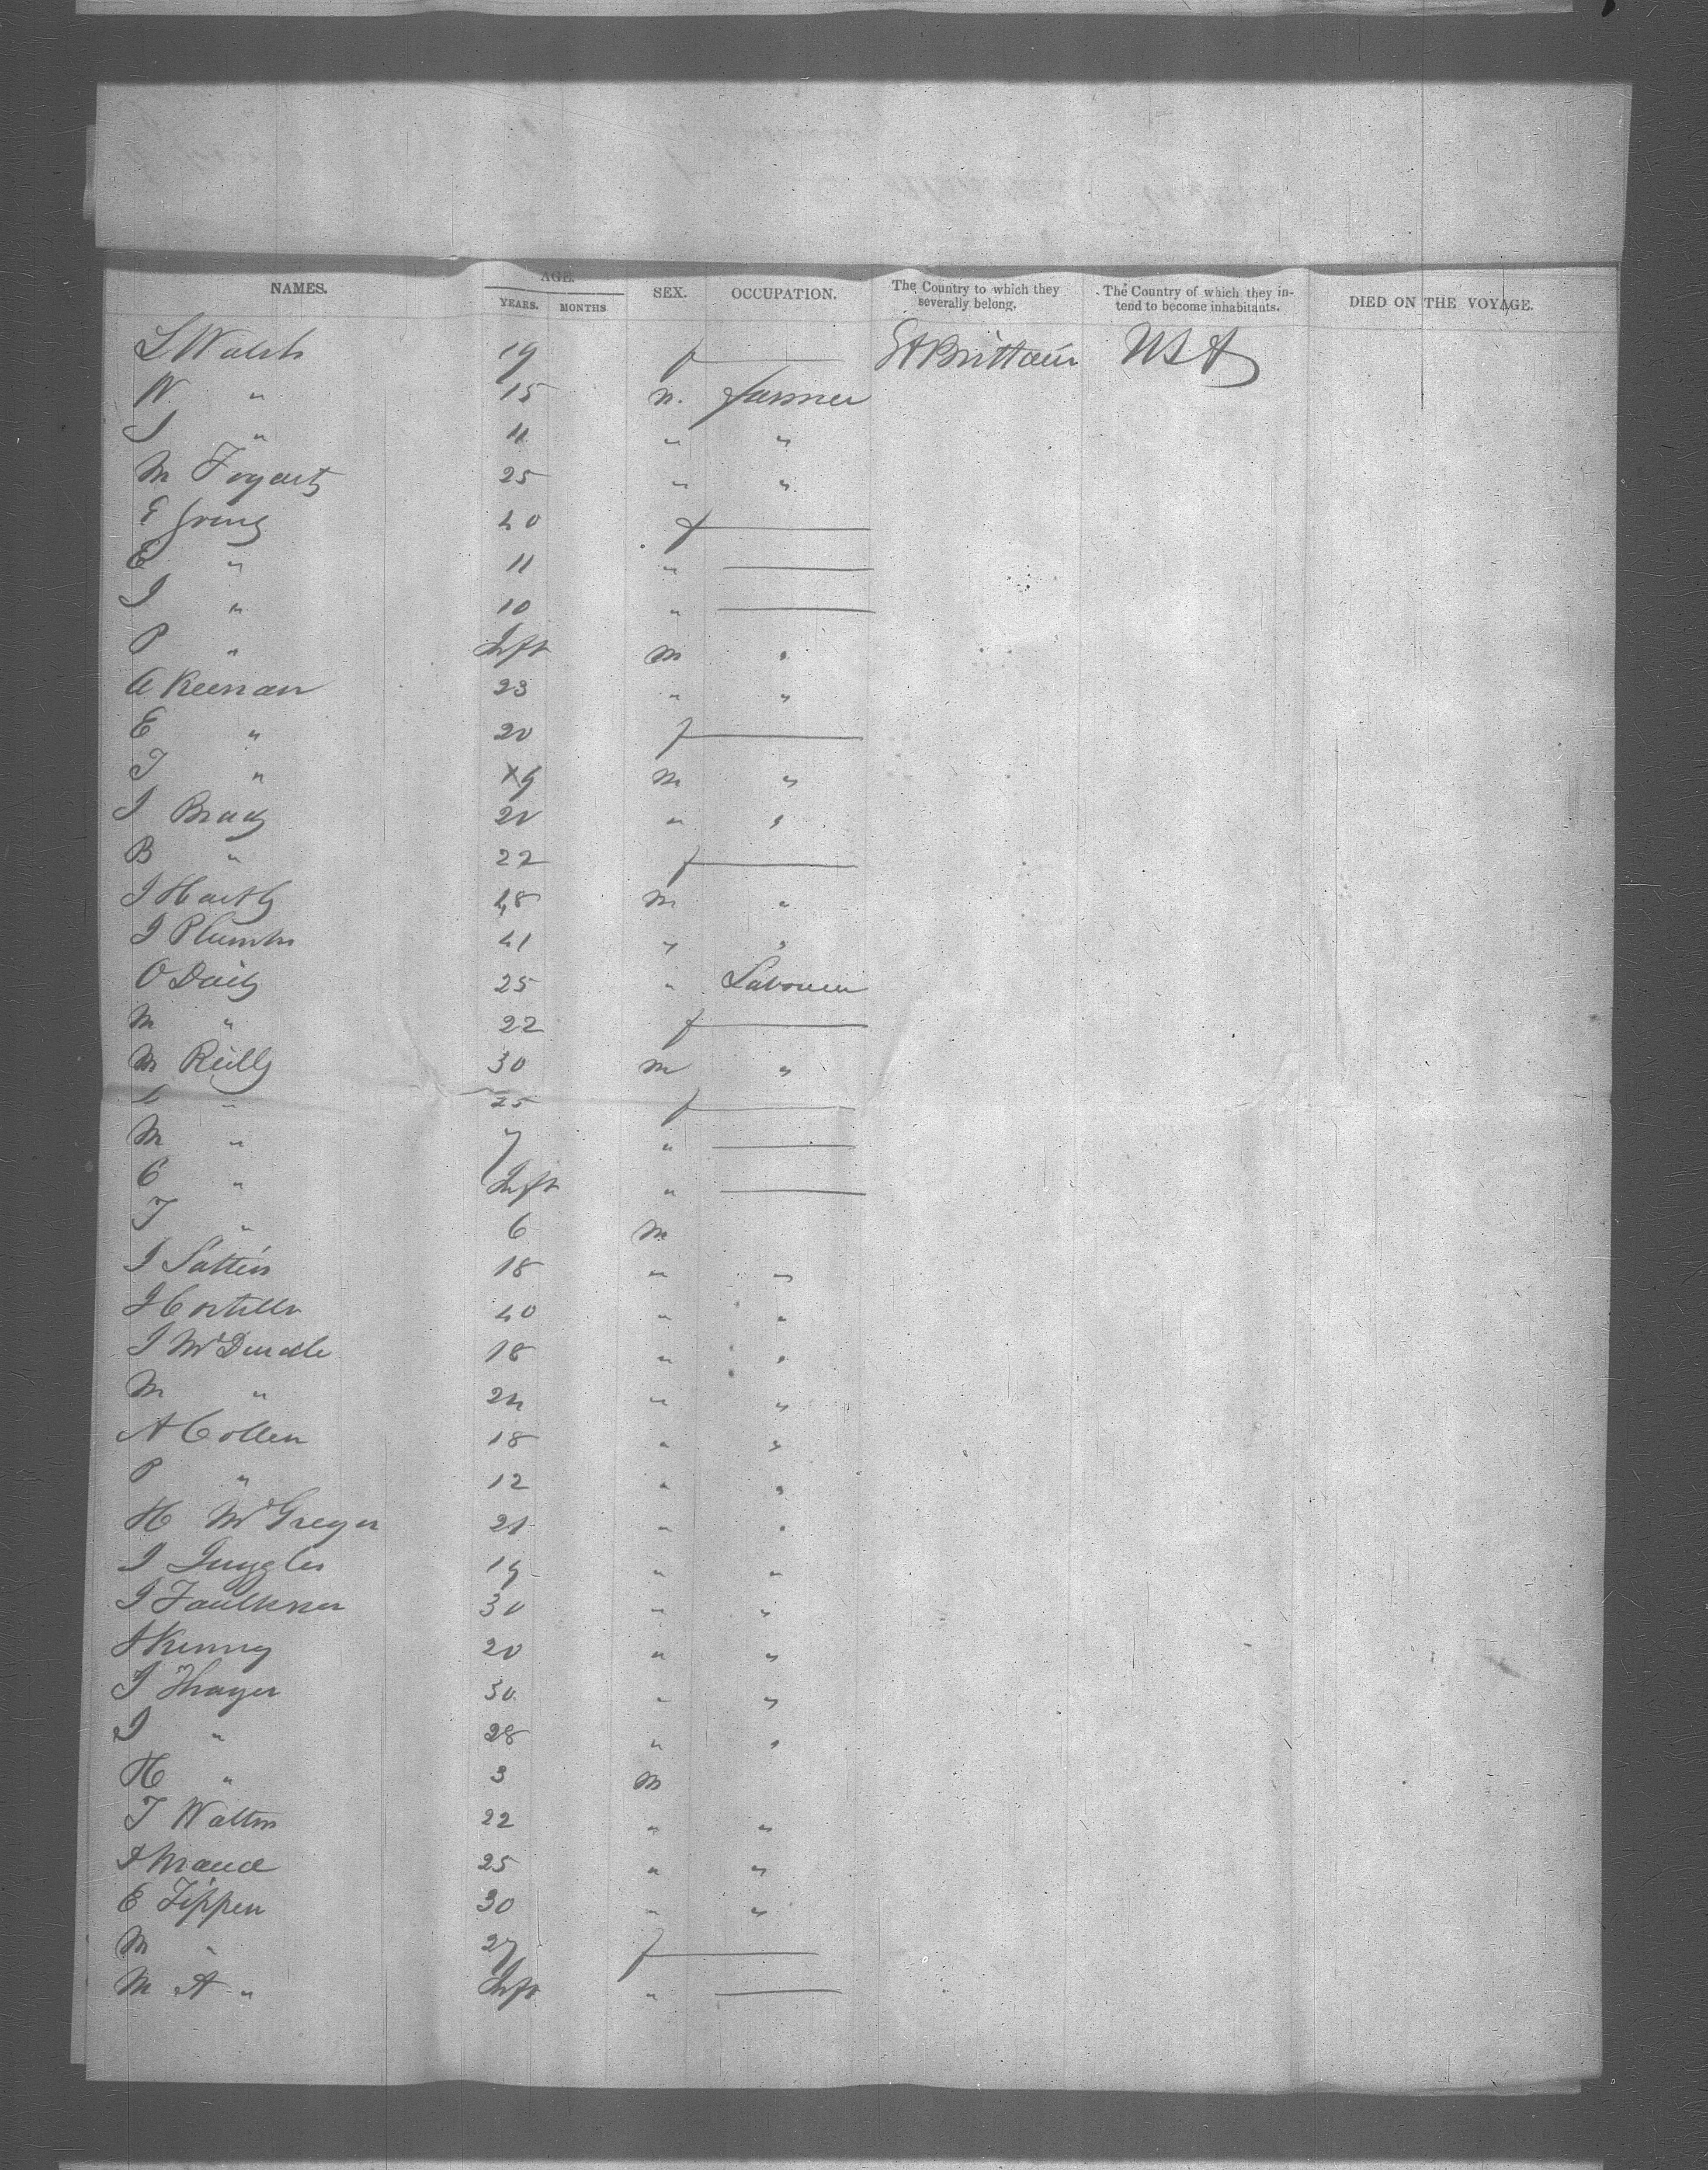 NAMES. AGE. YEARS. MONTHS SEX. OCCUPATION. The Country to which they severally belong. The Country of which they intend to become inhabitants. DIED ON THE VOYAGE.
L Walsh 19 f Gt Brittain USA
W " 15 m. farmer
J " 11 " "
M Fogarty 25 " "
E 40 f
E " 11 "
J " 10 "
P " Inft M "
A Keenan 23 " "
E " 20 f
T " 19 M "
J Brady 20 " "
B " 22 f
J Harty 48 M "
J Plumb 41 " "
O Daily 25 " Labourer
M " 22 f
M Reilly 30 M "
" 25 f
M " 7 "
C " Inft "
T " 6 M
J 18 " "
J Costello 40 " "
J McDendle 18 " "
M " 24 " "
A Collen 18 " "
P " 12 " "
H McGregor 21 " "
J 19 " "
J Faulkner 30 " "
J Kenny 20 " "
J Thayer 30 " "
J " 28 " "
H " 3 M
T Walton 22 " "
25 " "
E Tippen 30 " "
M " 27 f
M A " Inft "